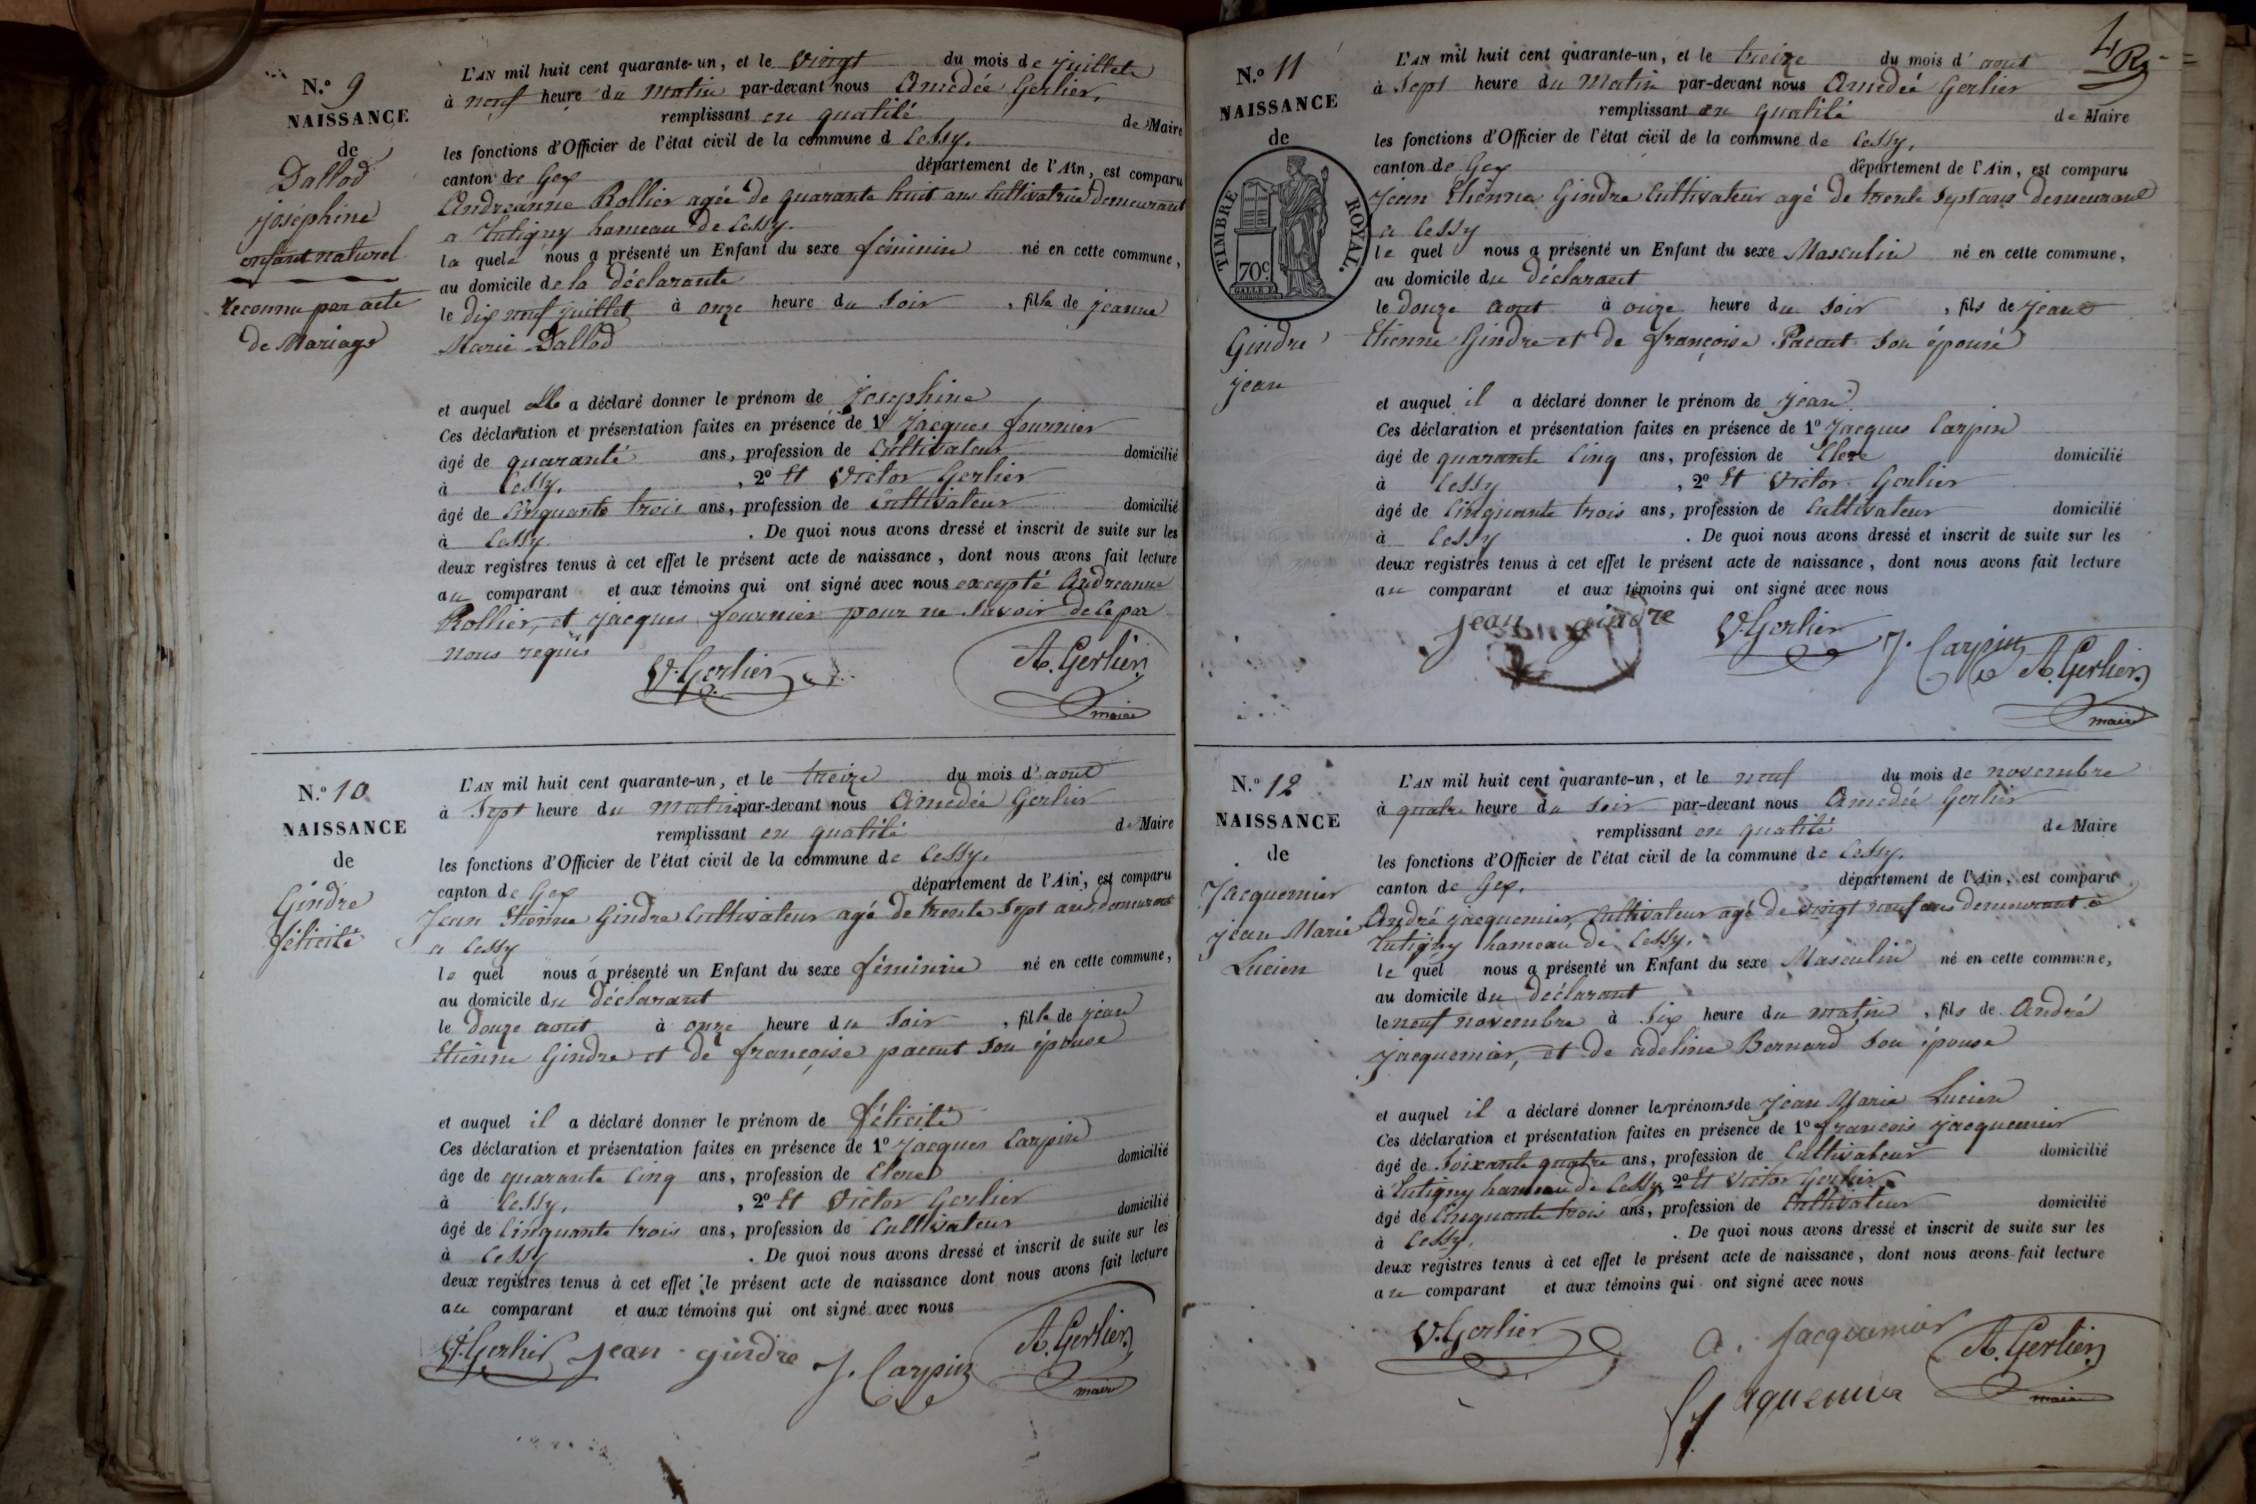 N.º 9
NAISSANCE
de
Dallod
joséphine
enfant naturel
reconnu par acte
de Mariage
L'AN mil huit cent quarante-un, et le vingt du mois de juillet
à neuf heure du matin par-devant nous Amédée Gerlier,
remplissant en qualité de Maire
les fonctions d'Officier de l'état civil de la commune d Cessy.
canton de Gex département de l'Ain, est comparu
Andreanne Rollier agée de quarante huit ans Cultivatrice demeurant
a Tutigny hameau de Cessy.
la quele nous a présenté un Enfant du sexe féminin né en cette commune,
au domicile de la déclarante
le dix neuf juillet à onze heure du soir, fille de jeanne
Marie Dallod
et auquel elle a déclaré donner le prénom de josephine
Ces déclaration et présentation faites en présence de 1º jacques fournier
âgé de quarante ans, profession de Cultivateur domicilié
à Cessy. , 2º Et Victor Gerlier
âgé de Cinquante trois ans, profession de Cultivateur domicilié
à Cessy . De quoi nous avons dressé et inscrit de suite sur les
deux registres tenus à cet effet le présent acte de naissance, dont nous avons fait lecture
au comparant et aux témoins qui ont signé avec nous excepté Andreanne
Rollier, et jacques fournier pour ne savoir de ce par
nous requis
V. Gerlier A. Gerlier
maire
N.º 10
NAISSANCE
de
Gindre
félicité
L'AN mil huit cent quarante-un, et le treize du mois d'aout
à Sept heure du matin par-devant nous Amédée Gerlier
remplissant en qualité de Maire
les fonctions d'Officier de l'état civil de la commune de Cessy.
canton de Gex département de l'Ain, est comparu
Jean Etienne Gindre Cultivateur agé de trente Sept ans demeurant
a Cessy
le quel nous a présenté un Enfant du sexe féminin né en cette commune,
au domicile du déclarant
le douze aout à onze heure du soir, fille de jean
Etienne Gindre et de françoise pacaut son épouse
et auquel il a déclaré donner le prénom de félicité
Ces déclaration et présentation faites en présence de 1º Jacques Carpin
âge de quarante Cinq ans, profession de domicilié
à Cessy. , 2º Et Victor Gerlier
âgé de Cinquante trois ans, profession de Cultivateur domicilié
à Cessy . De quoi nous avons dressé et inscrit de suite sur les
deux registres tenus à cet effet le présent acte de naissance dont nous avons fait lecture
au comparant et aux témoins qui ont signé avec nous
V. Gerlier jean gindre J. Carpin A. Gerlier
maire
4
R
N.º 11
NAISSANCE
de
TIMBRE ROYAL.
70c
Gindre
jean
L'AN mil huit cent quarante-un, et le treize du mois d'aout
à Sept heure du Matin par-devant nous Amédée Gerlier
remplissant en qualité de Maire
les fonctions d'Officier de l'état civil de la commune de Cessy,
canton de Gex département de l'Ain, est comparu
Jean Etienne Gindre Cultivateur agé de trente Sept ans demeurant
a Cessy
le quel nous a présenté un Enfant du sexe Masculin né en cette commune,
au domicile du déclarant
le douze aout à onze heure du soir, fils de jean
Etienne Gindre et de françoise Pacaut son épouse
et auquel il a déclaré donner le prénom de jean
Ces déclaration et présentation faites en présence de 1º Jacques Carpin
âgé de quarante Cinq ans, profession de domicilié
à Cessy , 2º Et Victor Gerlier
âgé de Cinquante trois ans, profession de Cultivateur domicilié
à Cessy . De quoi nous avons dressé et inscrit de suite sur les
deux registres tenus à cet effet le présent acte de naissance, dont nous avons fait lecture
au comparant et aux témoins qui ont signé avec nous
jean gindre V. Gerlier J. Carpin A. Gerlier
maire
N.º 12
NAISSANCE
de
Jacquemier
jean Marie
Lucien
L'AN mil huit cent quarante-un, et le neuf du mois de novembre
à quatre heure du soir par-devant nous Amédée Gerlier
remplissant en qualité de Maire
les fonctions d'Officier de l'état civil de la commune de Cessy.
canton de Gex. département de l'Ain, est comparu
André jacquemier, Cultivateur agé de vingt neuf ans demeurant a
Tutigny hameau de Cessy.
le quel nous a présenté un Enfant du sexe Masculin né en cette commune,
au domicile du déclarant
le neuf novembre à Six heure du matin, fils de André
jacquemier, et de adeline Bernard son épouse
et auquel il a déclaré donner les prénoms de jean Marie Lucien
Ces déclaration et présentation faites en présence de 1º françois jacquemier
âgé de Soixante quatre ans, profession de Cultivateur domicilié
à Tutigny hameau de Cessy, 2º Et Victor Gerlier
âgé de Cinquante trois ans, profession de Cultivateur domicilié
à Cessy. . De quoi nous avons dressé et inscrit de suite sur les
deux registres tenus à cet effet le présent acte de naissance, dont nous avons fait lecture
au comparant et aux témoins qui ont signé avec nous
V. Gerlier a. jacquemier A. Gerlier
maire